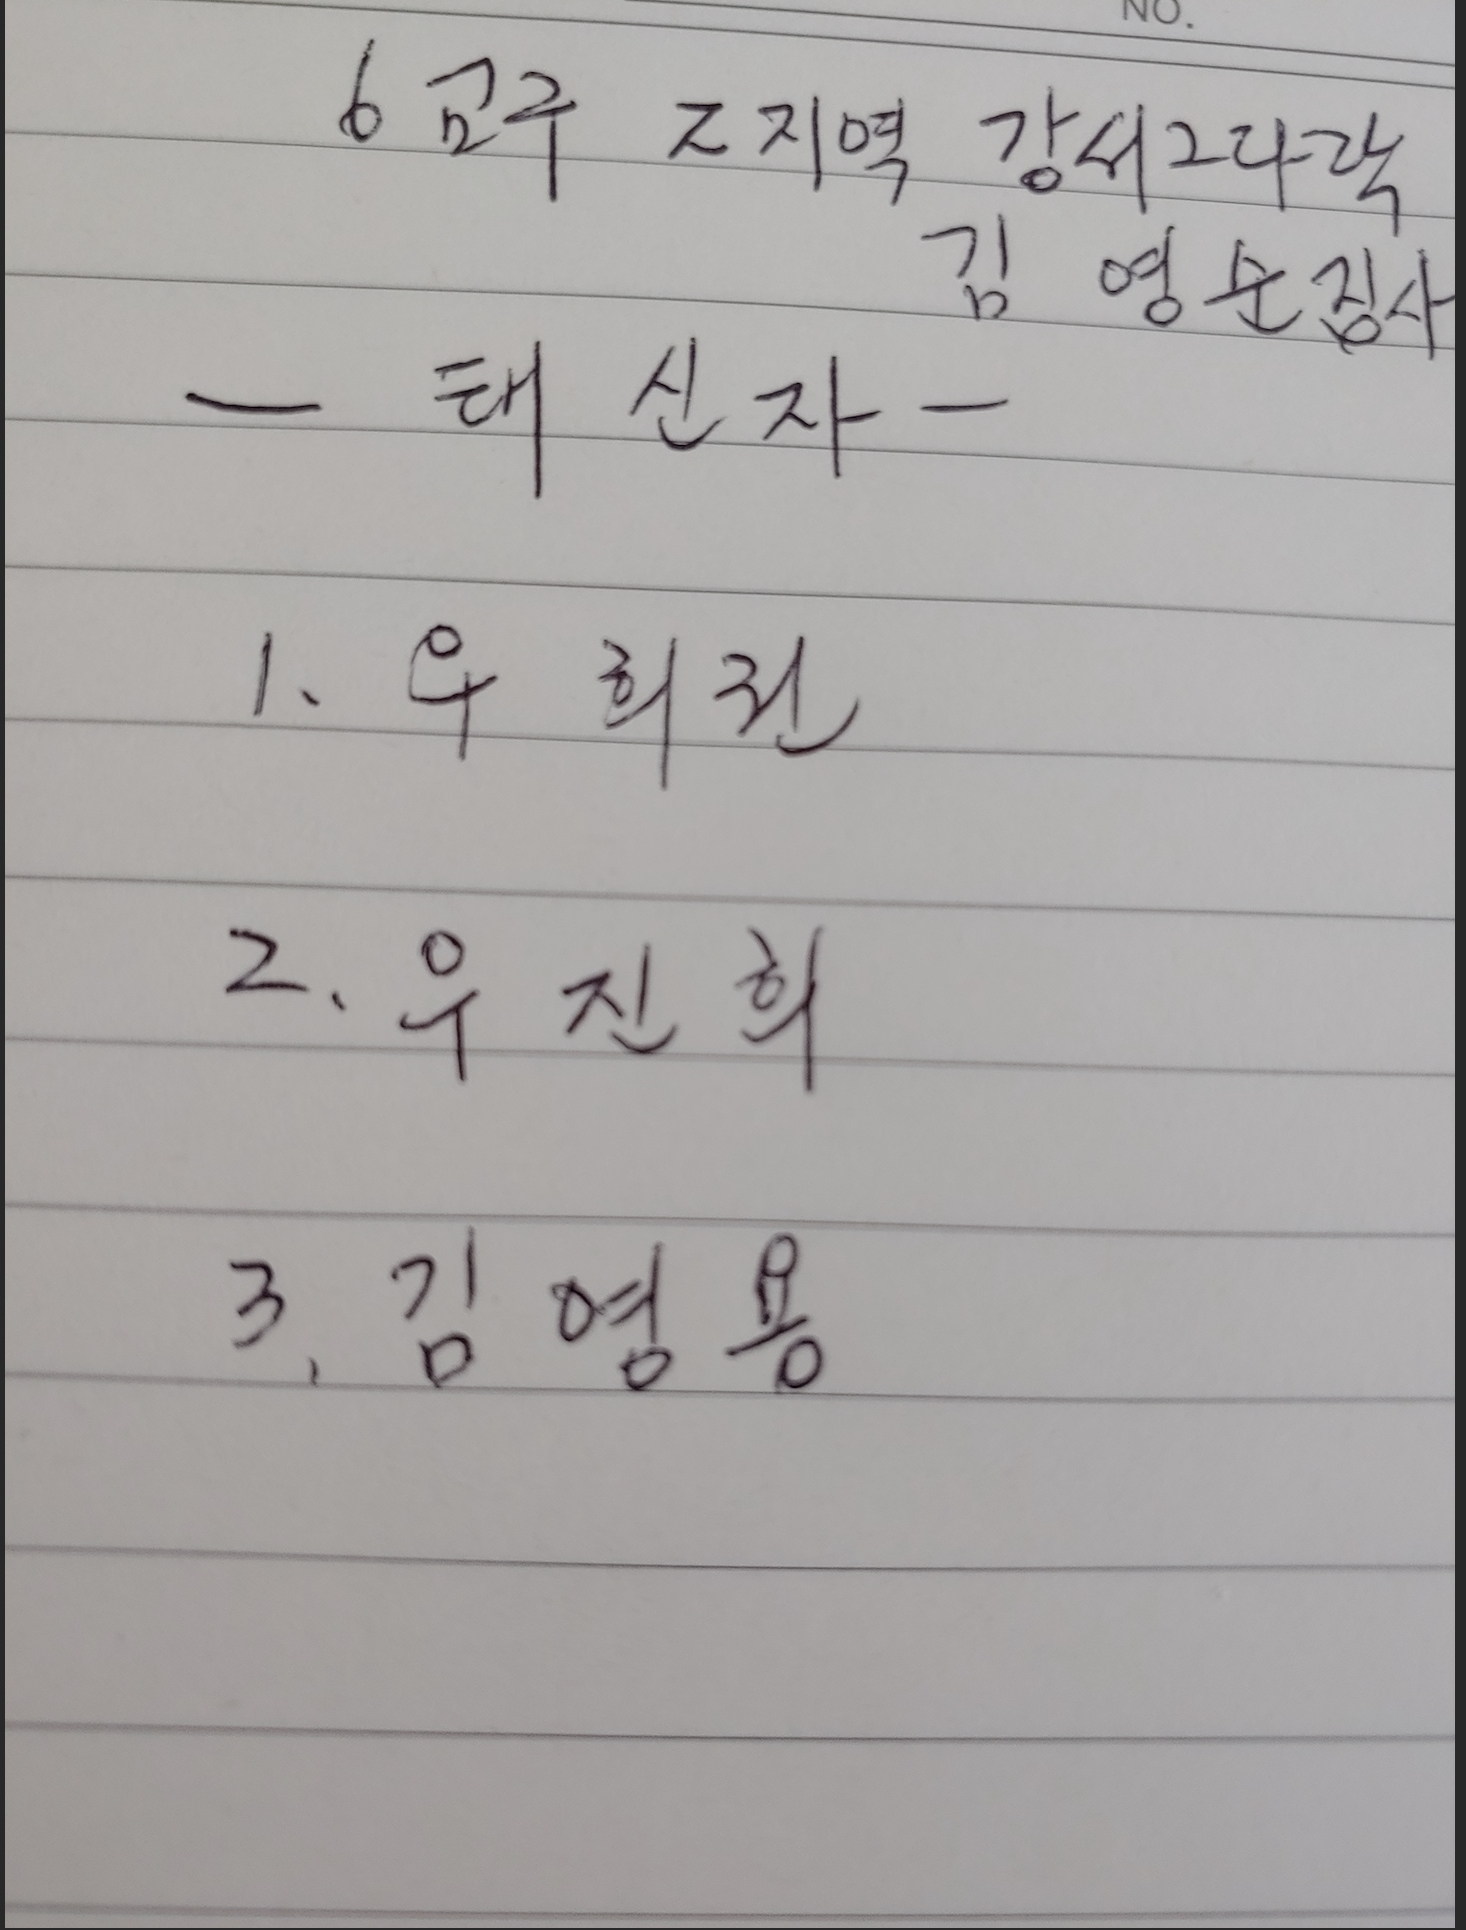 NO.
6교구 2지역 강서2다락
김 영순집사
- 태신자 -
1. 우희권
2. 우진희
3. 김영용